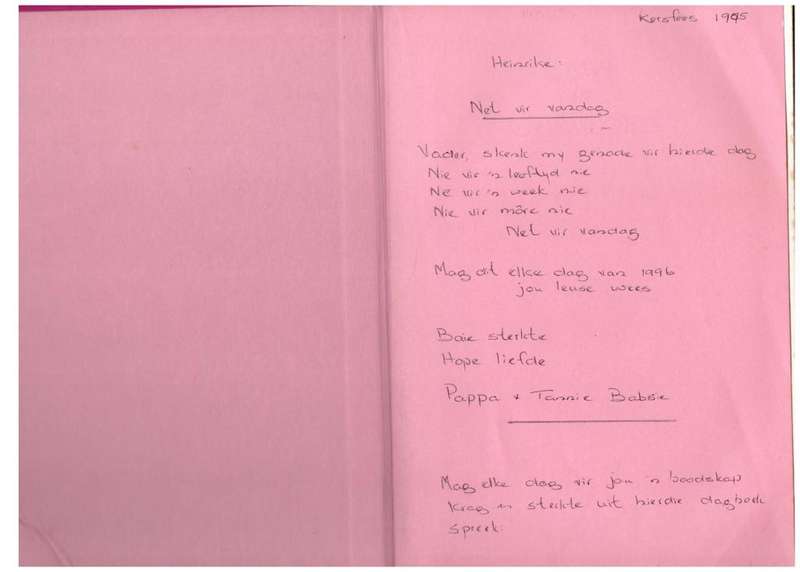 Kersfees 1995
Heinrike:
Net vir vandag
Vader, skenk my genade vir hierdie dag
Nie vir 'n leeftyd nie
Ne vir 'n week nie
Nie vir môre nie
Net vir vandag
Mag dit elke dag van 1996
jou leuse wees
Baie sterkte
Hope liefde
Pappa + Tannie Babsie
Mag elke dag vir jou 'n boodskap
krag en sterkte uit hierdie dagboek
spreek.